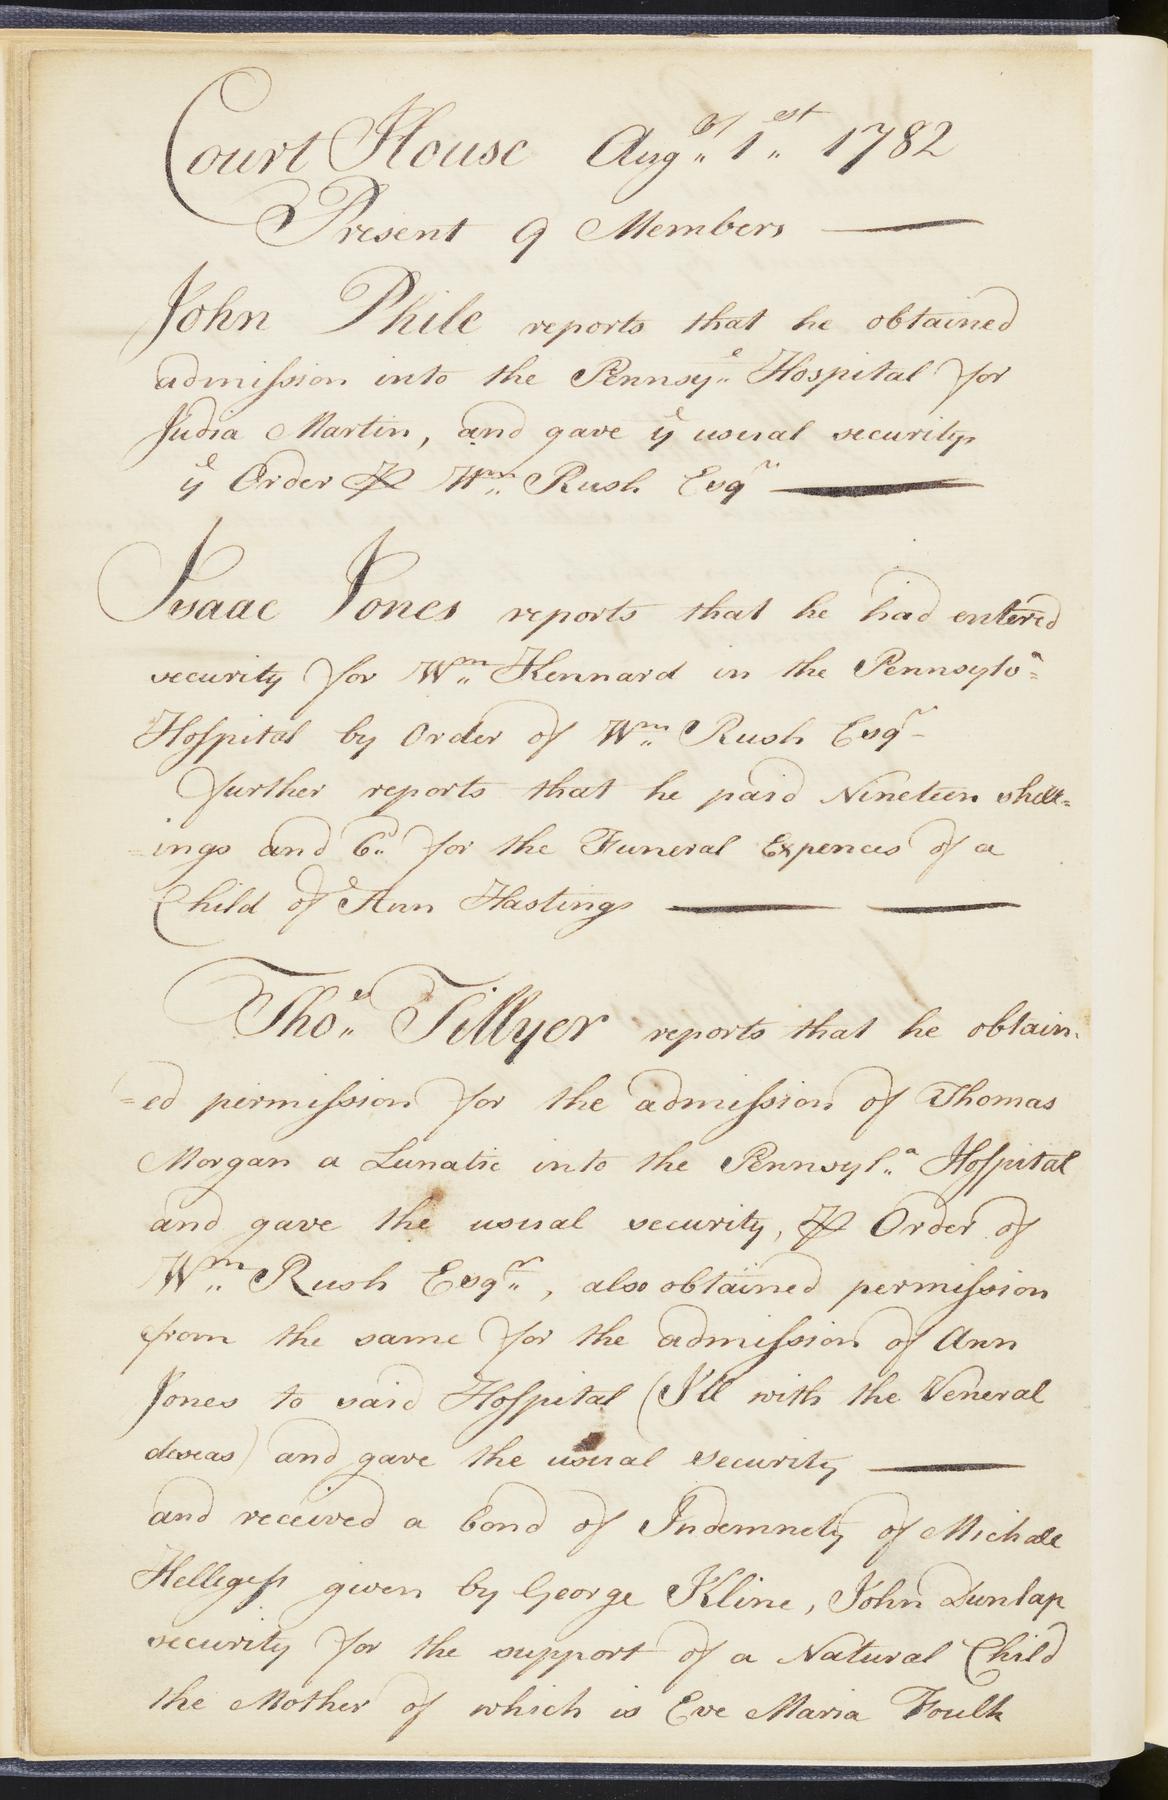 Court House Augst 1st 1782
Present 9 Members
John Phile reports that he obtained
admission into the Pennsye Hospital for
Judia Martin, and gave ye usual security
ye Order ⅌ Wm Rush Esqr
Isaac Jones reports that he had entered
security for Wm Kennard in the Pennsylva
Hospital by Order of Wm Rush Esqr
further reports that he paid Nineteen shill=
=ings and 6d for the Funeral Expences of a
Child of Ann Hastings
Thos Tillyer reports that he obtain=
=ed permission for the admission of Thomas
Morgan a Lunatic into the Pennsyla Hospital
and gave the usual security, ⅌ Order of
Wm Rush Esqr, also obtained permission
from the same for the admission of Ann
Jones to said Hospital (Ill with the Veneral
deseas) and gave the usual security
and received a bond of Indemnety of Michael
Hellegess given by George Kline, John Dunlap
security for the support of a Natural Child
the Mother of which is Eve Maria Foulk